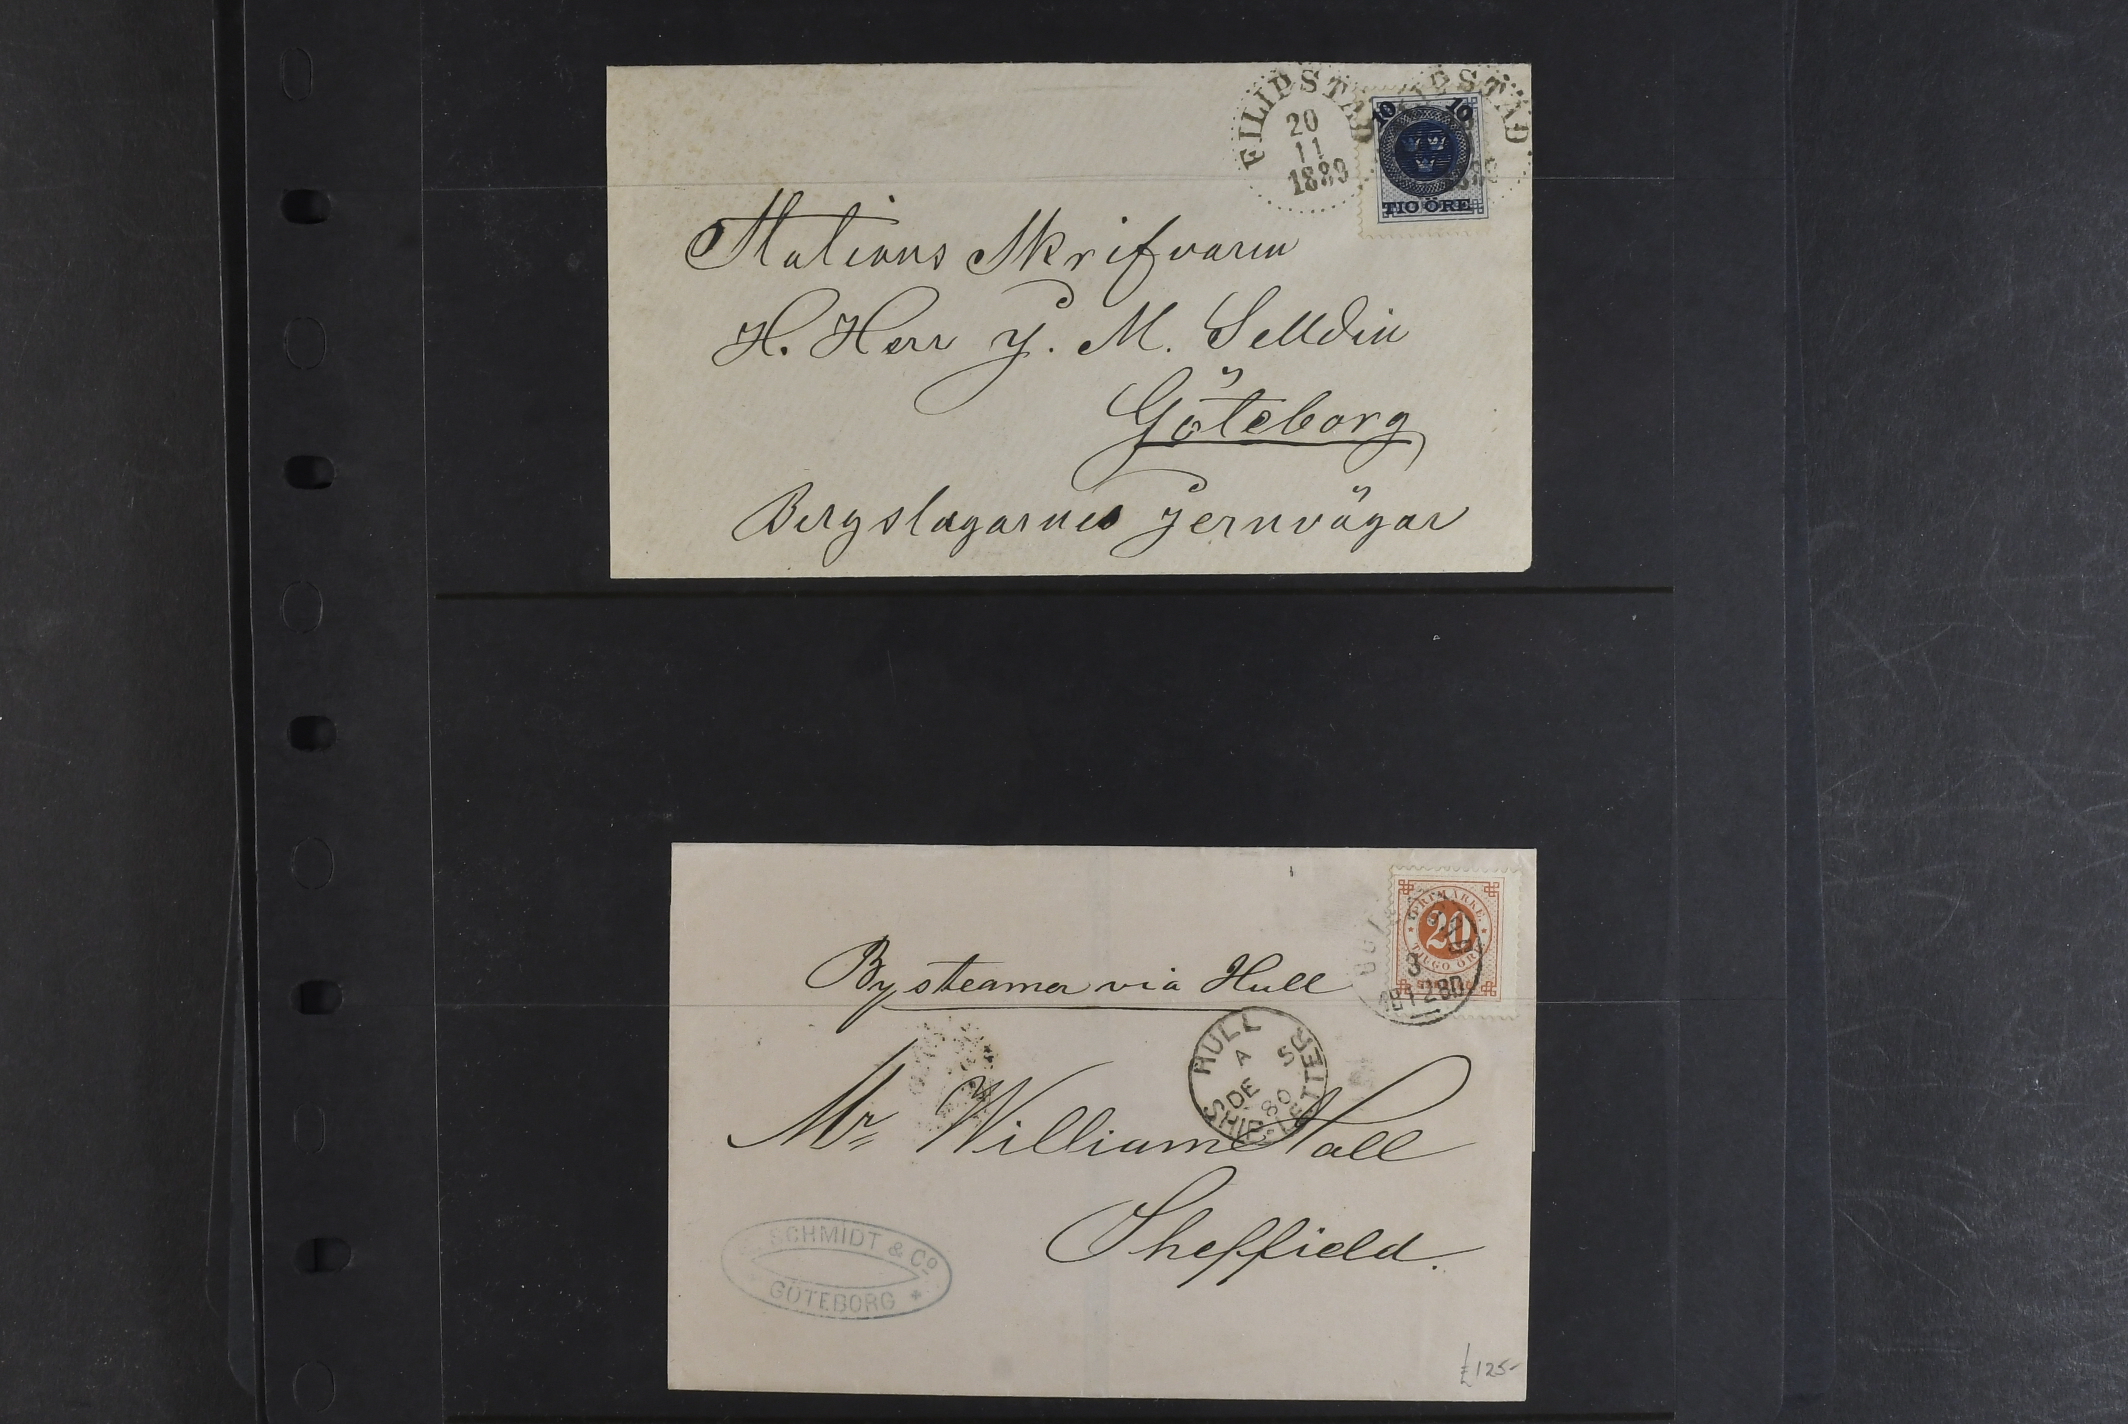 FILIPSTAD
20
11
1889
FILIPSTAD
10 10
TIO ÖRE
Stations Skrifvaren
H. Herr J. M. Selldin
Göteborg
Bergslagarnes Jernvägar
FRIMÄRKE
20
TJUGO ÖRE
3
1880
By steamer via Hull
HULL
A 5
DE
80
SHIP-LETTER
Mr William Hall
Sheffield.
SCHMIDT & Co
GÖTEBORG
£125-